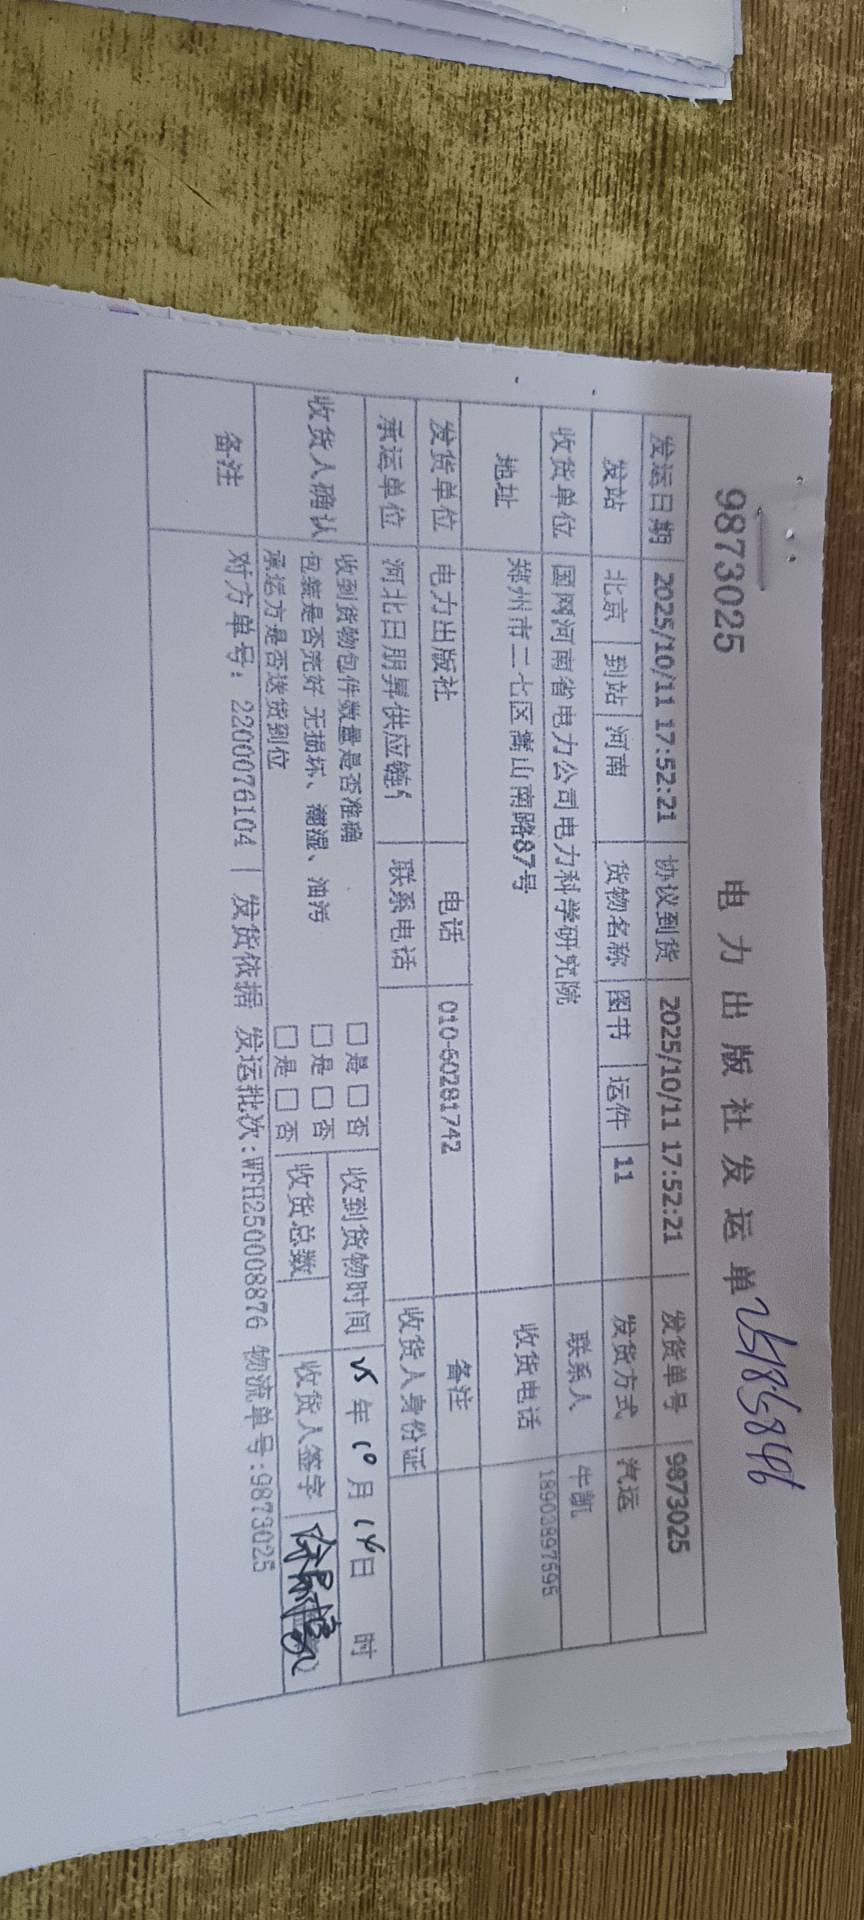 9873025
电力出版社发运单
发运日期 2025/10/11 17:52:21 协议到货 2025/10/11 17:52:21 发货单号 9873025
发站 北京 到站 河南 货物名称 图书 运件 11 发货方式 汽运
收货单位 国网河南省电力公司电力科学研究院 联系人 牛凯
地址 郑州市二七区嵩山南路87号 收货电话 18903897595
发货单位 电力出版社 电话 010-60281742 备注
承运单位 河北日朋昇供应链 联系电话 收货人身份证
收货人确认 收到货物包件数量是否准确 □是□否 收到货物时间 25年10月14日 时
包装是否完好 无损坏、潮湿、油污 □是□否 收货总数 收货人签字
承运方是否送货到位 □是□否
备注 对方单号：2200076104 | 发货依据 发运批次:WFH250008876 物流单号:9873025